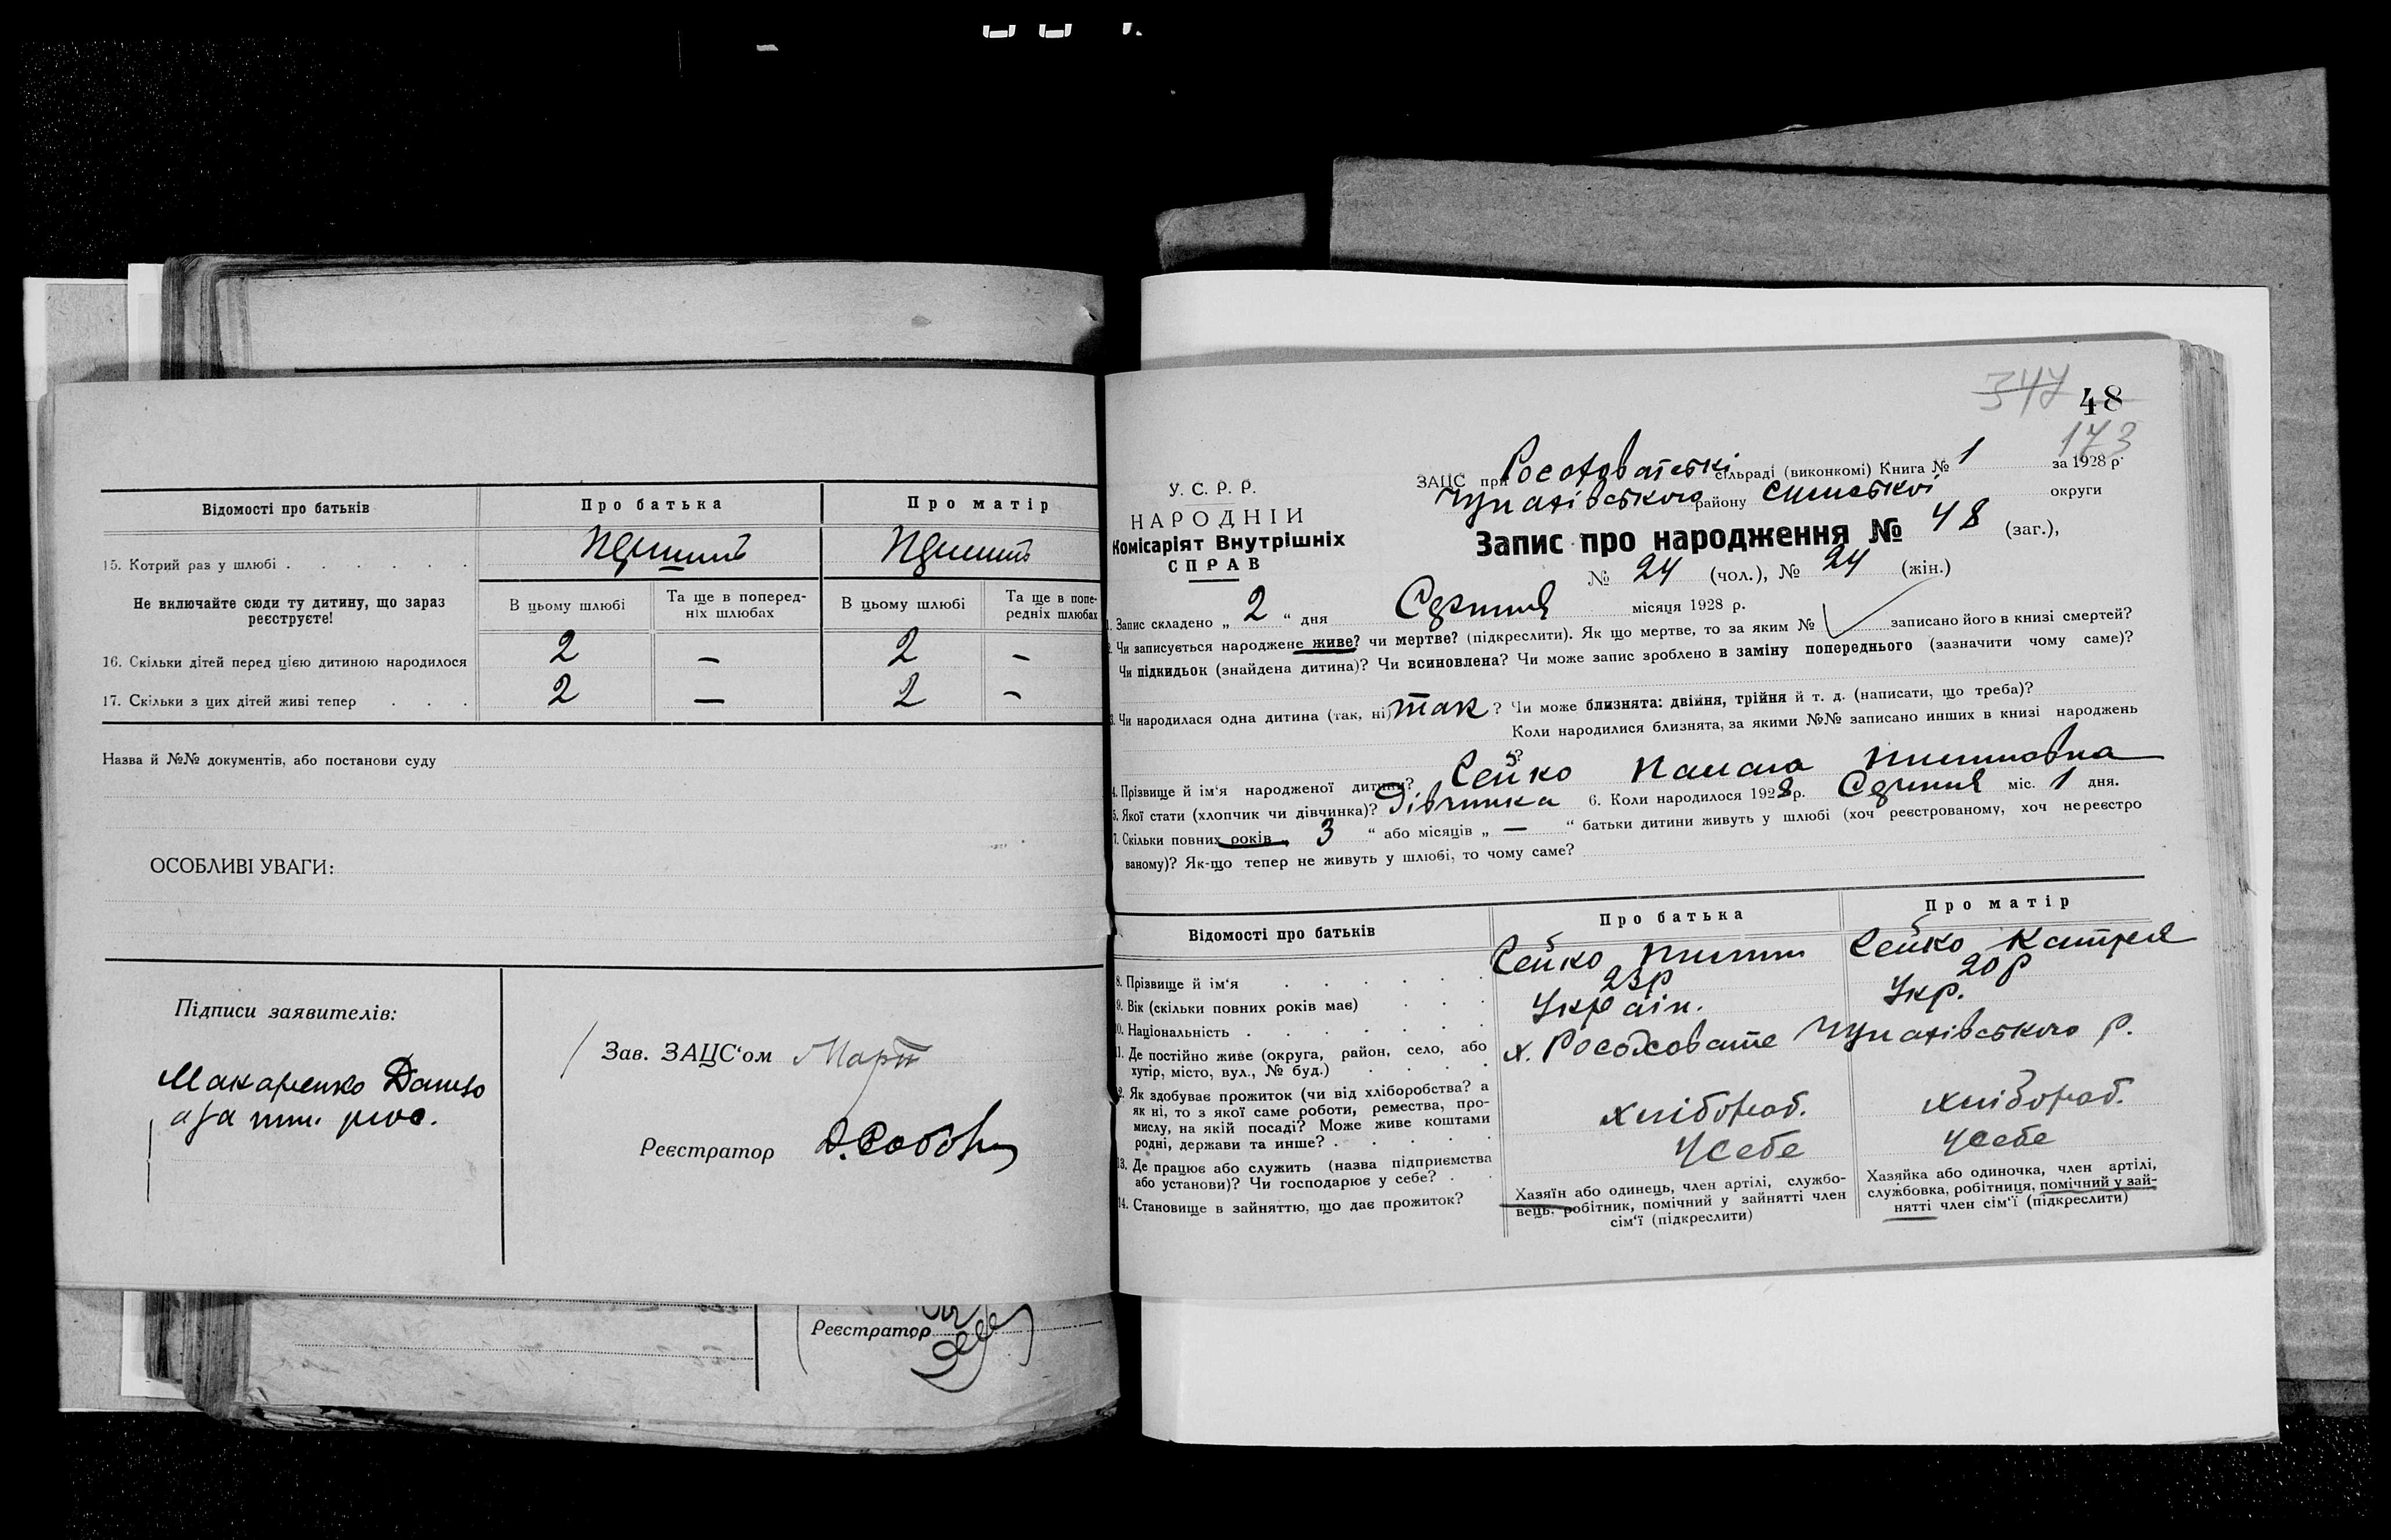 Відомості про батьків
Про батька
Про матір
15. Котрий раз у шлюбі . . . . . .
Не включайте сюди ту дитину, що зараз
реєструєте!
В цьому шлюбі
Та ще в поперед-
ніх шлюбах
В цьому шлюбі
Та ще в попе-
редніх шлюбах
16. Скільки дітей перед цією дитиною народилося 2 — 2 —
17. Скільки з цих дітей живі тепер . . . 2 — 2 —
Назва й №№ документів, або постанови суду
ОСОБЛИВІ УВАГИ:
Підписи заявителів:
Макаренко Данило
Зав. ЗАЦС‘ом
Реєстратор
Реєстратор
347 48
173
У. С. Р. Р.
НАРОДНІЙ
Комісаріят Внутрішніх
СПРАВ
ЗАЦС при сільраді (виконкомі) Книга № 1 за 1928 р.
району округи
Запис про народження № 48 (заг.),
№ 24 (чол.), № 24 (жін.)
1. Запис складено „ 2 “ дня Серпня місяця 1928 р.
2. Чи записується народжене живе? чи мертве? (підкреслити). Як що мертве, то за яким № записано його в книзі смертей?
Чи підкидьок (знайдена дитина)? Чи всиновлена? Чи може запис зроблено в заміну попереднього (зазначити чому саме)?
3. Чи народилася одна дитина (так, ні) так ? Чи може близнята: двійня, трійня й т. д. (написати, що треба)?
Коли народилися близнята, за якими №№ записано инших в книзі народжень
4. Прізвище й ім‘я народженої дитини? Сейко
5. Якої стати (хлопчик чи дівчинка)? Дівчинка 6. Коли народилося 1928 р. Серпня міс. 1 дня.
7. Скільки повних років „ 3 “ або місяців „ — “ батьки дитини живуть у шлюбі (хоч реєстрованому, хоч нереєстро
ваному)? Як-що тепер не живуть у шлюбі, то чому саме?
Відомості про батьків
Про батька
Про матір
8. Прізвище й ім‘я . . . . . . Сейко Сейко Катря
9. Вік (скільки повних років має) . . . 23р 20р
10. Національність . . . . . . . Україн. Укр.
11. Де постійно живе (округа, район, село, або
хутір, місто, вул., № буд.) . . . .
12. Як здобуває прожиток (чи від хліборобства? а
як ні, то з якої саме роботи, ремества, про-
мислу, на якій посаді? Може живе коштами
родні, держави та инше? . . . . .
хлібороб. хлібороб.
13. Де працює або служить (назва підприємства
або установи)? Чи господарює у себе? . .
У себе У себе
14. Становище в зайняттю, що дає прожиток?
Хазяїн або одинець, член артілі, службо-
вець, робітник, помічний у зайнятті член
сім‘ї (підкреслити)
Хазяйка або одиночка, член артілі,
службовка, робітниця, помічний у зай-
нятті член сім‘ї (підкреслити)